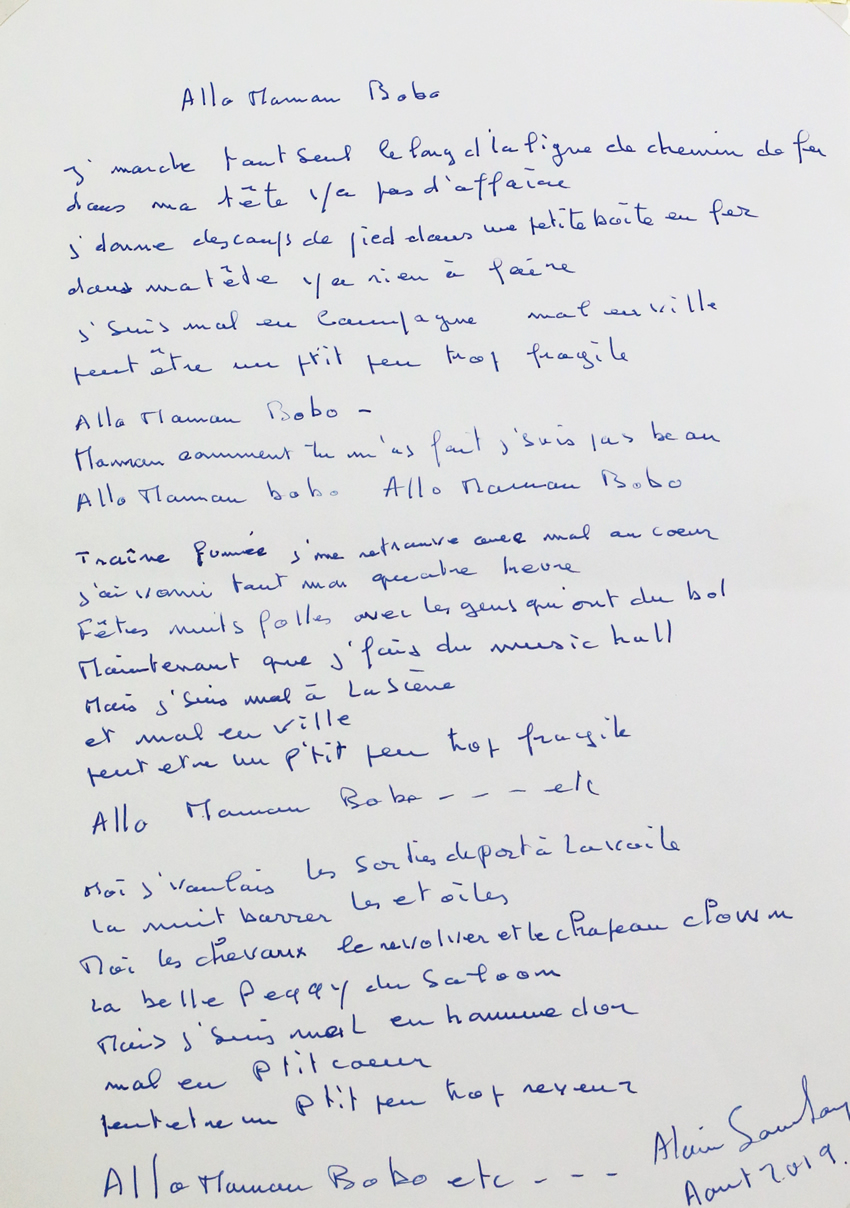 Allo Maman Bobo
J'marche tout seul le long d'la ligne de chemin de fer
dans ma tête y'a pas d'affaire
j'donne des coups de pied dans une petite boîte en fer
dans ma tête y a rien à faire
j'suis mal en campagne mal en ville
peut être un p'tit peu trop fragile
Allo Maman Bobo -
Maman comment tu m'as fait j'suis pas beau
Allo Maman bobo Allo Maman Bobo
Traîne fumée j'me retrouve avec mal au coeur
j'ai vomi tout mon quatre heure
Fêtes nuits folles avec les gens qu'ont du bol
Maintenant que j'fais du music hall
Mais j'suis mal à la scène
et mal en ville
peut etre un p'tit peu trop fragile
Allo Maman Bobo - - - - etc
Moi j'voulais les sorties de port à la voile
la nuit barrer les etoiles
Moi les chevaux le revolver et le chapeau clown
la belle Peggy du saloon
Mais j'suis mal en homme dor
mal en p'tit coeur
peut etre un p'tit peu trop reveur
Allo Maman Bobo etc - - -
Alain Souchon
Aout 2019.